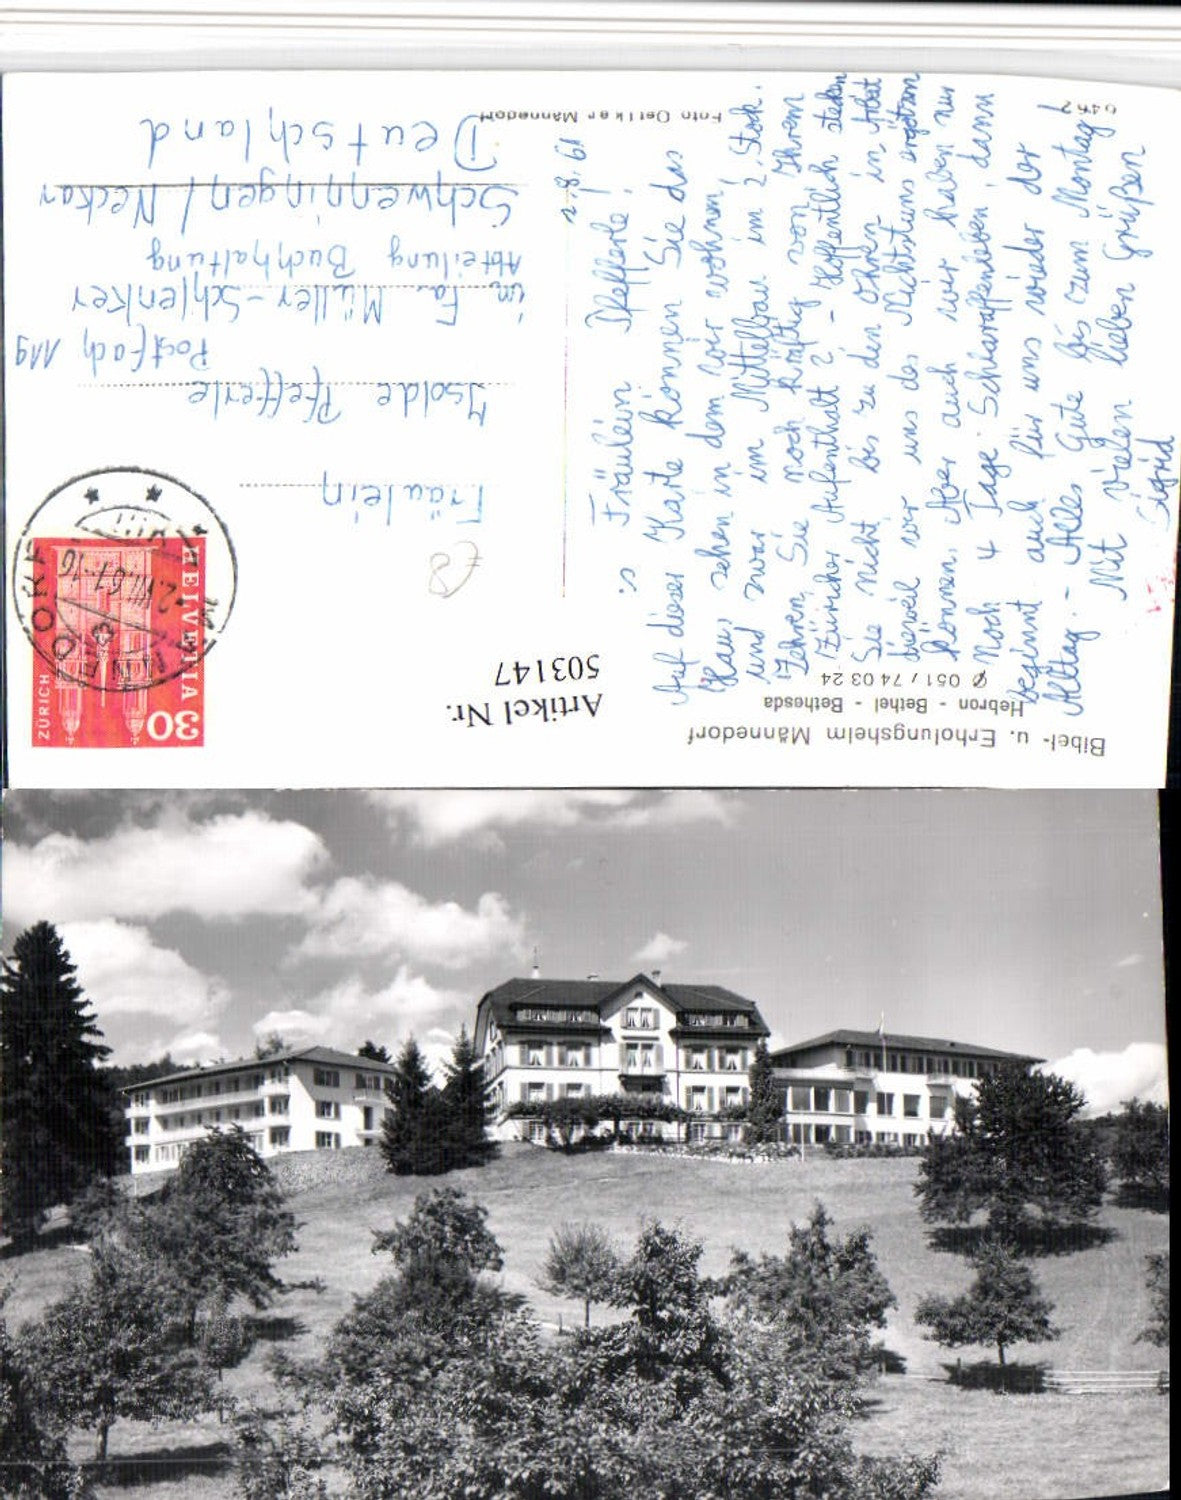 Bibel- u. Erholungsheim Männedorf
Hebron - Bethel - Bethesda
✆ 051 / 74 03 24
Artikel Nr.
503147
HELVETIA 30
ZÜRICH
MÄNNEDORF
2.VIII.61-16
Fräulein
Isolde Pfefferle
Postfach 119
im Fa. Müller-Schlenker
Abteilung Buchhaltung
Schwenningen/Neckar
Deutschland
Foto Oetiker Männedorf
6462
2.8.61
is Fräulein Pfefferle!
Auf dieser Karte können Sie das
Haus sehen in dem wir wohnen,
und zwar im Mittelbau im 2. Stock.
Zehren Sie noch kräftig von Ihrem
Züricher Aufenthalt? - Hoffentlich stecken
Sie nicht bis zu den Ohren in Arbeit
dieweil wir uns des Nichtstuns ergötzen
können. Aber auch wir haben nur
noch 4 Tage Schlaraffenleben, dann
beginnt auch für uns wieder der
Alltag. - Alles Gute bis zum Montag!
Mit vielen lieben Grüßen
Sigrid